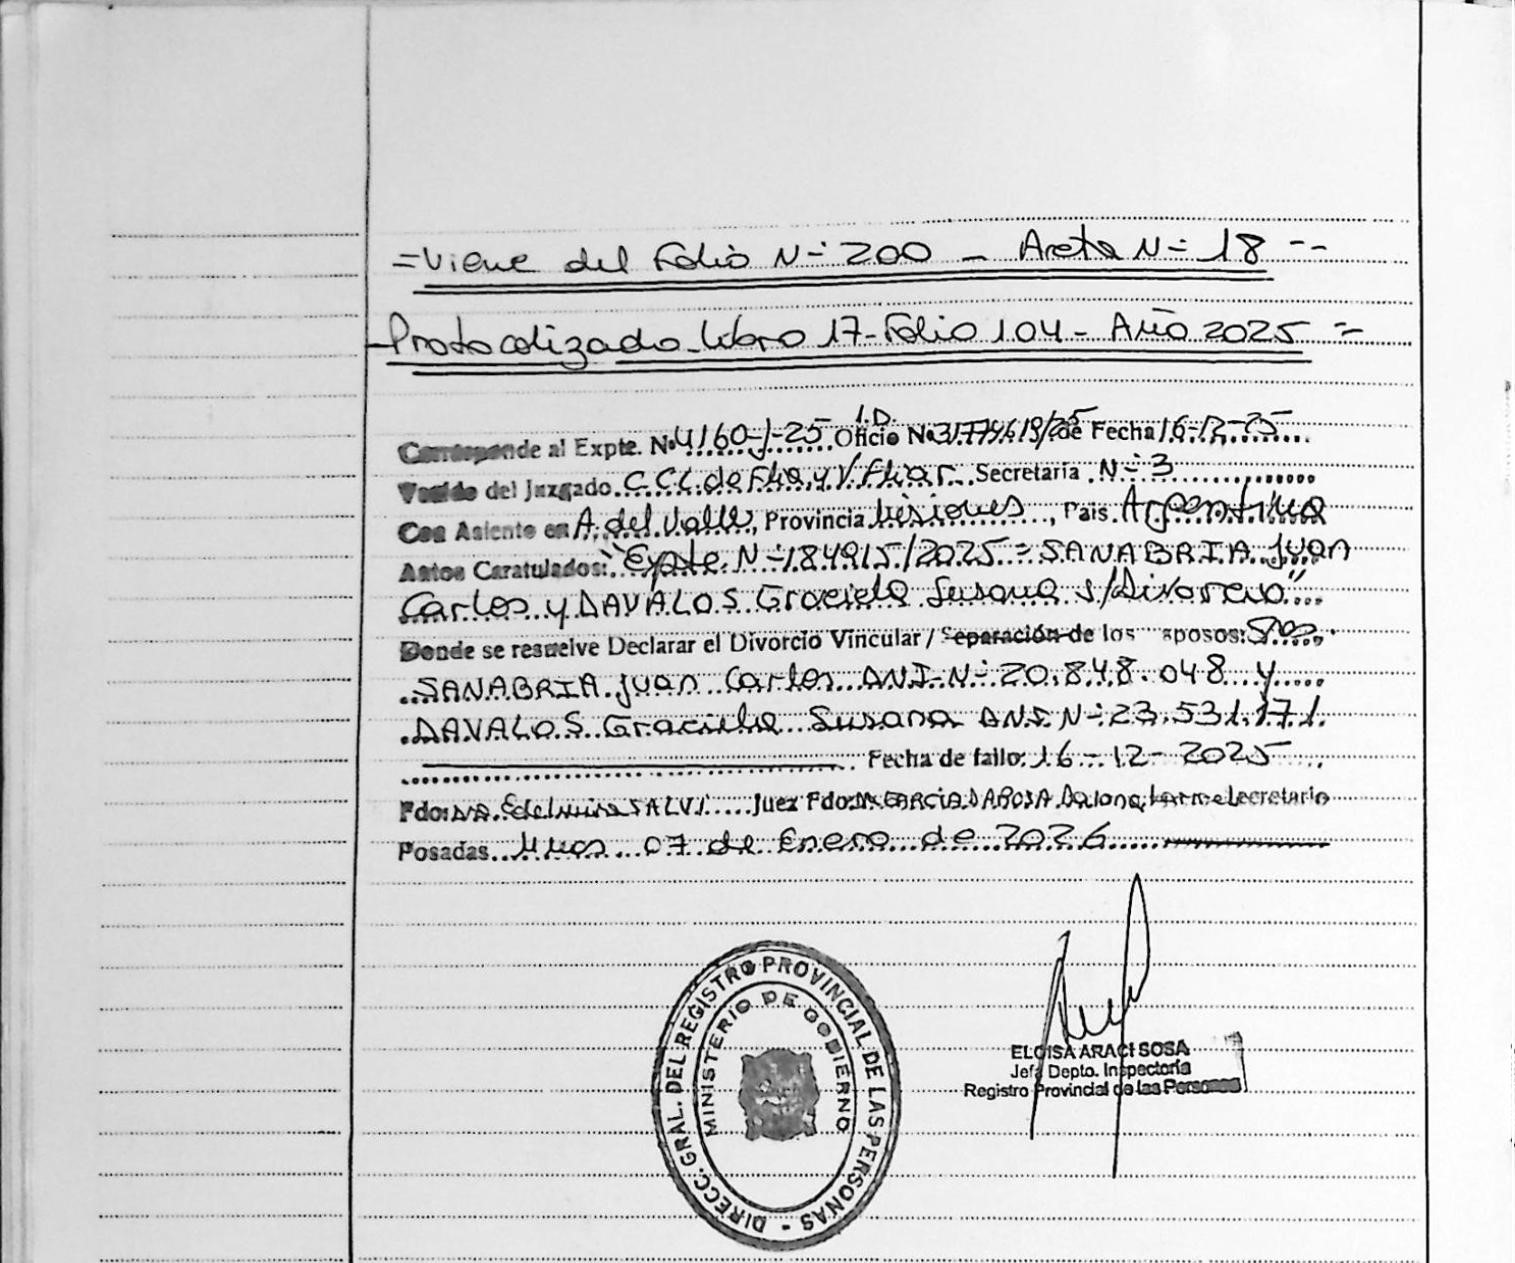 =Viene del Folio N-200 - Acta N-18 --
-Protocolizado-libro 17-Folio 104-Año 2025 =-
I.D.
Corresponde al Expte. Nº 4160-J-25 Oficio Nº /25 de Fecha 16-12-25
Venido del Juzgado C.C.L.de Flia.y V.Fliar. Secretaría N-3
Con Asiento en A.del Valle, Provincia Misiones, País Argentina
Autos Caratulados: "Expte N-184915/2025 = SANABRIA Juan
Carlos y DAVALOS Graciela Susana s/Divorcio"
Donde se resuelve Declarar el Divorcio Vincular / Separación de los sposos:
SANABRIA Juan Carlos DNI-N-20.848.048 y
DAVALOS Graciela Susana DNI.N-23.531.171.
Fecha de fallo: 16-12-2025
Fdo: Edelmira SALVI Juez Fdo: Secretario
Posadas Mnes 07 de Enero de 2026
DIRECC. GRAL. DEL REGISTRO PROVINCIAL DE LAS PERSONAS -
MINISTERIO DE GOBIERNO
ELOISA ARACI SOSA
Jefa Depto. Inspectoría
Registro Provincial de las Personas